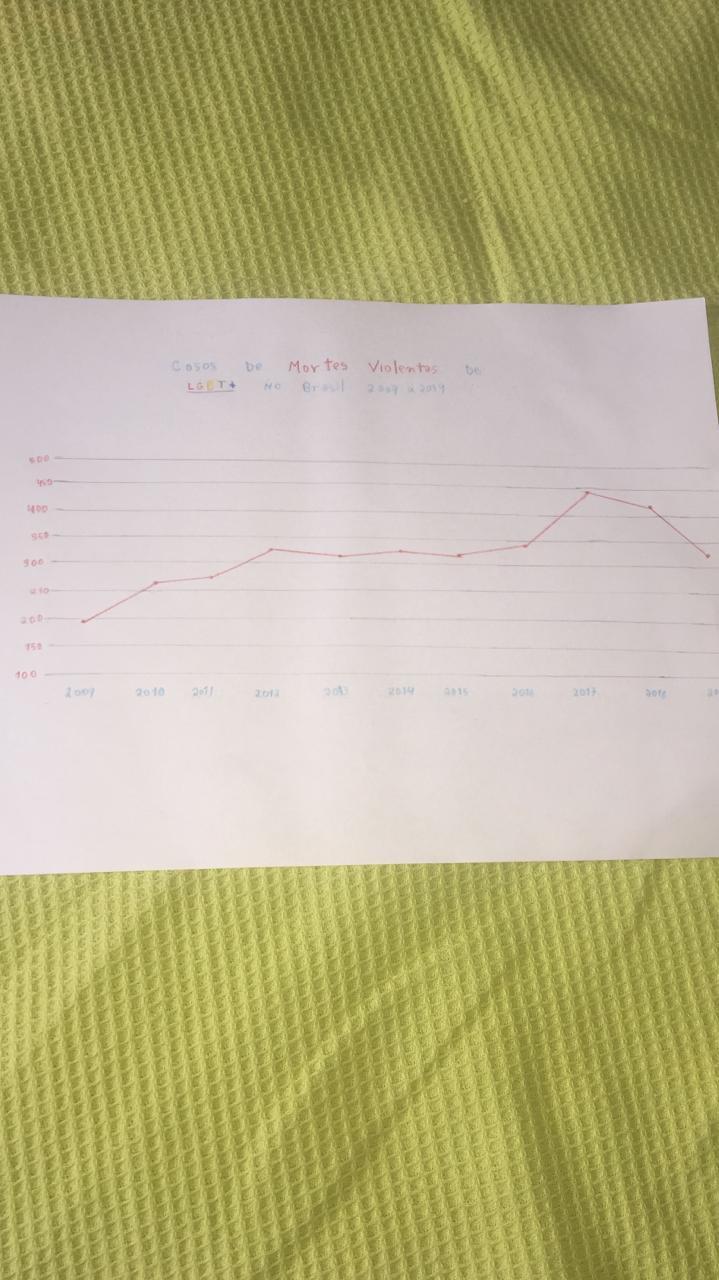 Casos De Mortes Violentas De
LGBT+ No Brasil 2009 a 2019
500
450
400
350
300
250
200
150
100
2009 2010 2011 2012 2013 2014 2015 2016 2017 2018